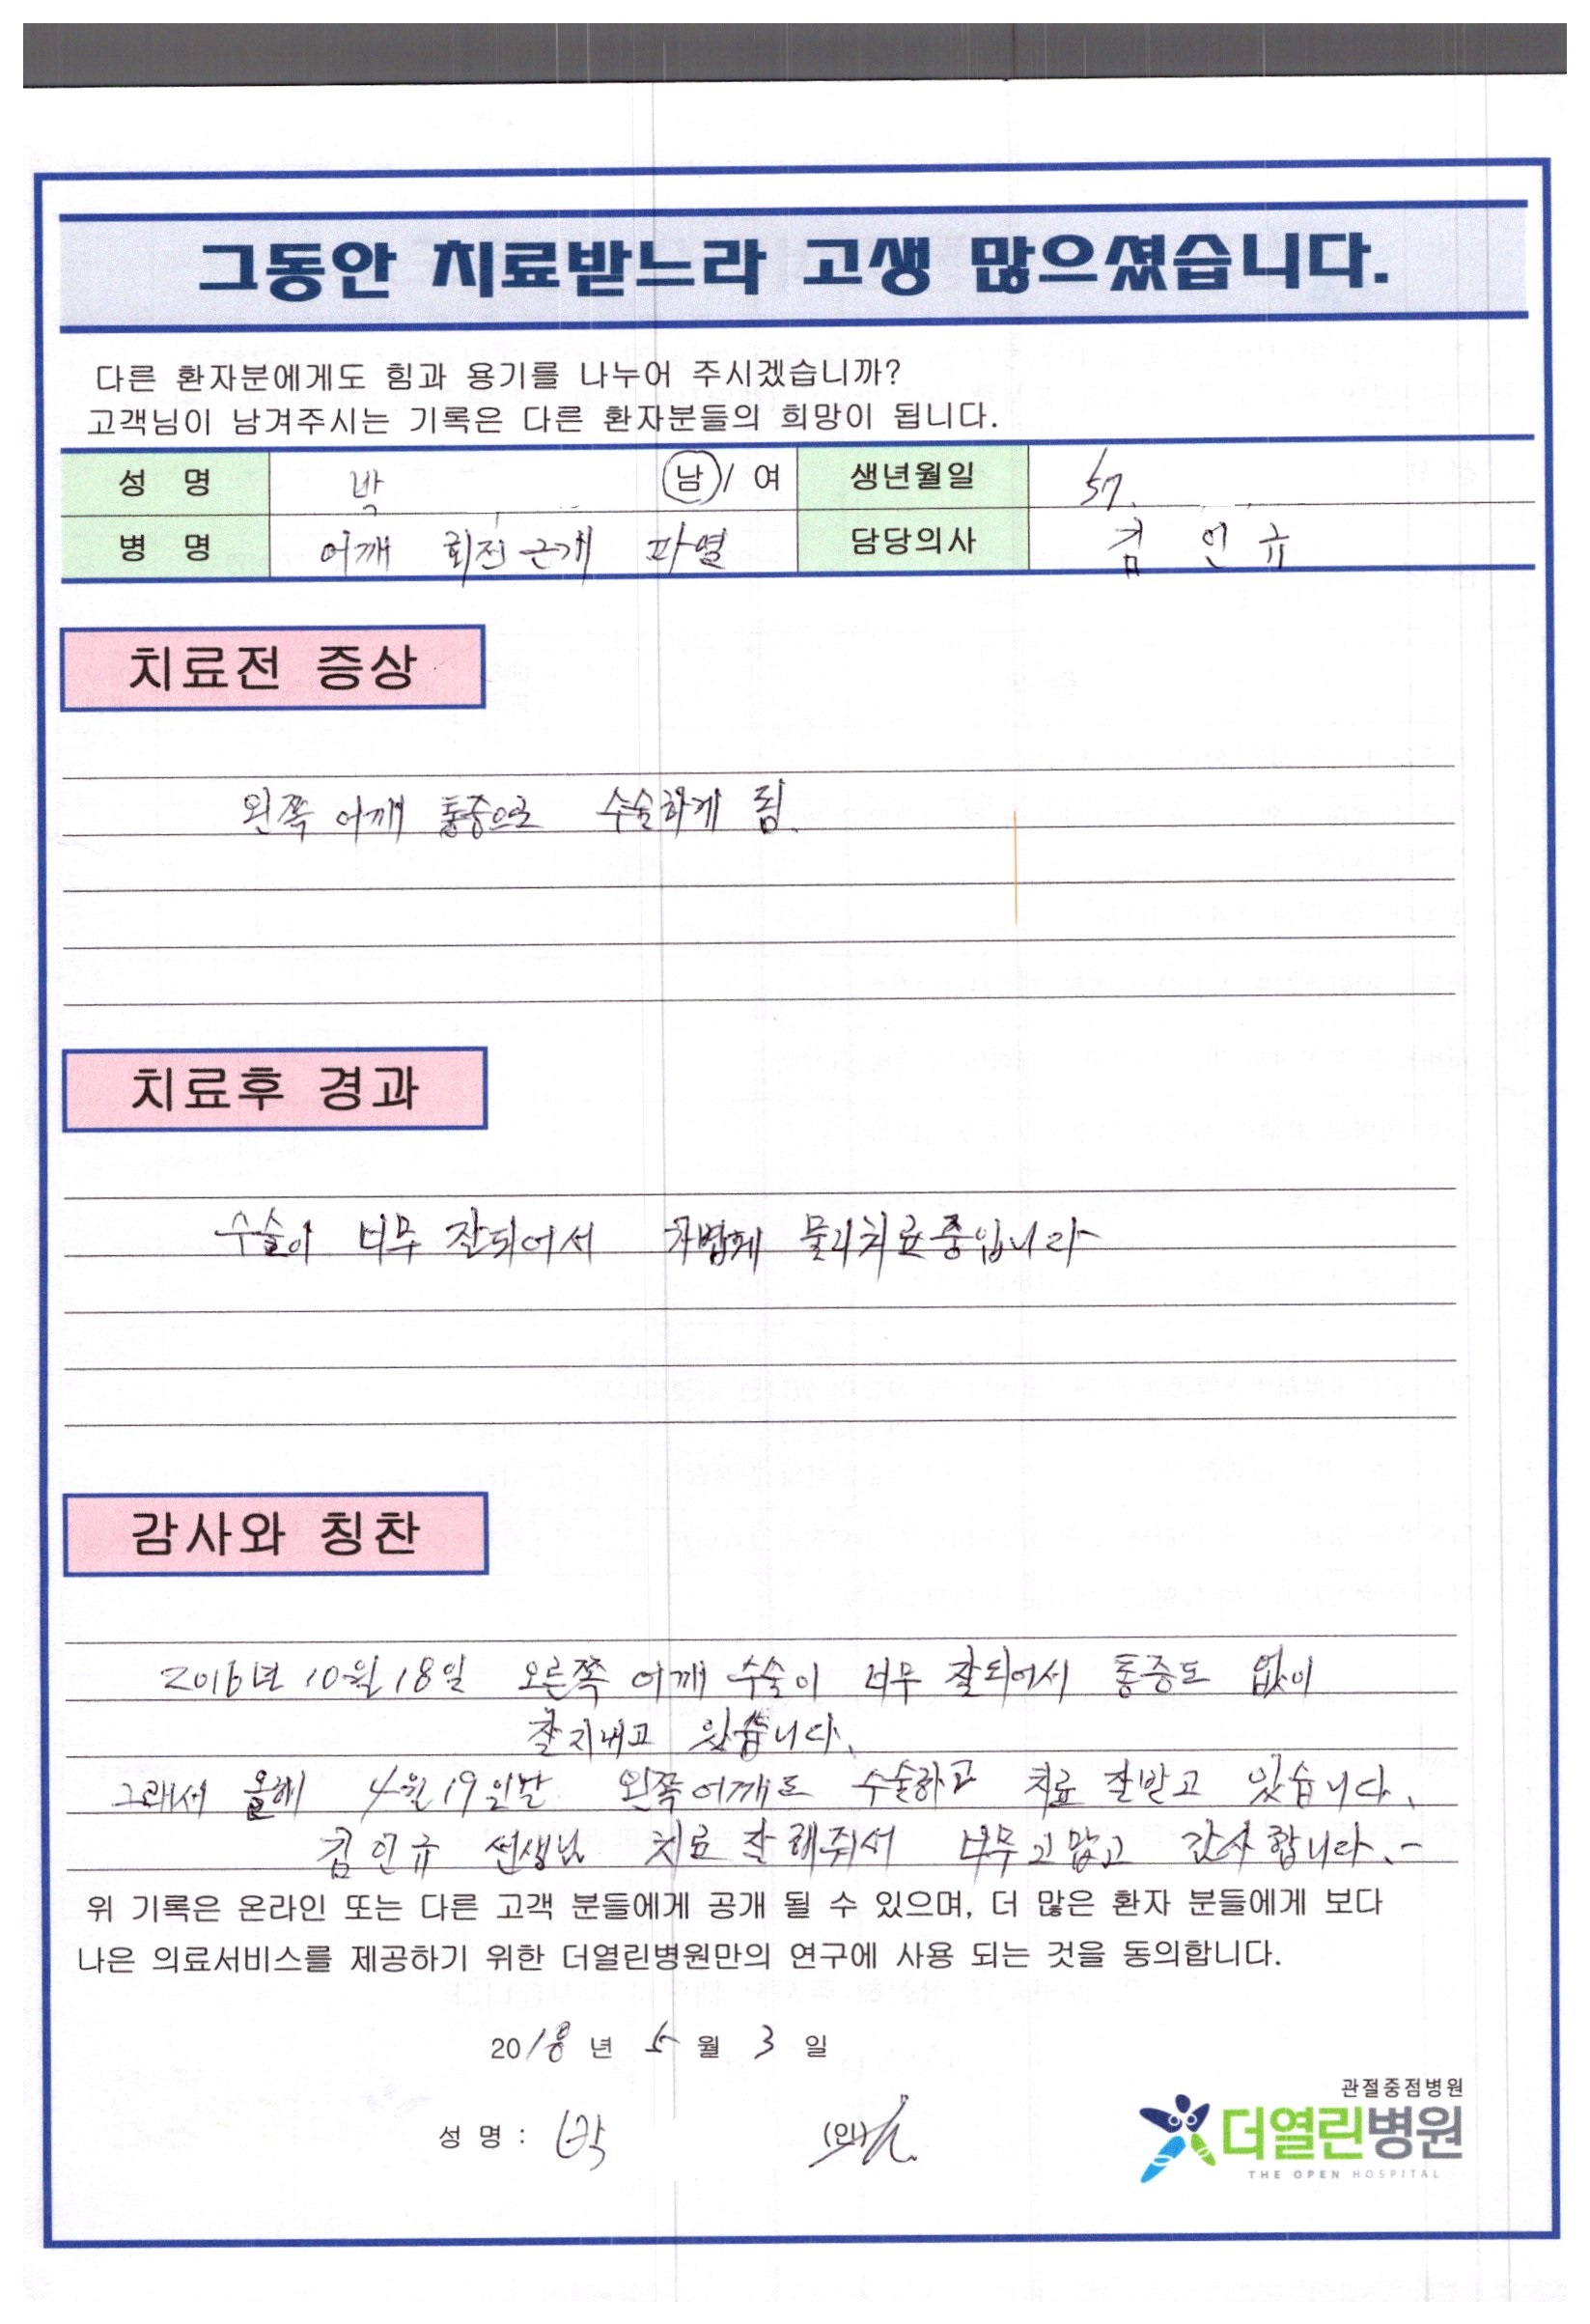 그동안 치료받느라 고생 많으셨습니다.
다른 환자분에게도 힘과 용기를 나누어 주시겠습니까?
고객님이 남겨주시는 기록은 다른 환자분들의 희망이 됩니다.
성 명 박 남 / 여 생년월일 57.
병 명 어깨 회전근개 파열 담당의사 김 인 규
치료전 증상
왼쪽 어깨 통증으로 수술하게 됨.
치료후 경과
수술이 너무 잘되어서 가볍게 물리치료중입니다
감사와 칭찬
2016년 10월 18일 오른쪽 어깨 수술이 너무 잘되어서 통증도 없이
잘지내고 있습니다.
그래서 올해 4월 19일날 왼쪽어깨도 수술하고 치료 잘받고 있습니다.
김인규 선생님 치료 잘해줘서 너무고맙고 감사합니다.-
위 기록은 온라인 또는 다른 고객 분들에게 공개 될 수 있으며, 더 많은 환자 분들에게 보다
나은 의료서비스를 제공하기 위한 더열린병원만의 연구에 사용 되는 것을 동의합니다.
2018 년 5 월 3 일
성 명 : 박 (인)
관절중점병원
더열린병원
THE OPEN HOSPITAL